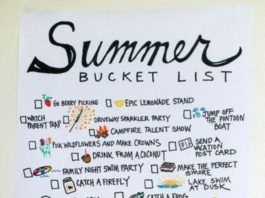 Summer
BUCKET LIST
GO BERRY PICKING
EPIC LEMONADE STAND
WATCH PARENT TRAP
DRIVEWAY SPARKLER PARTY
JUMP OFF THE PONTOON BOAT
CAMPFIRE TALENT SHOW
PICK WILDFLOWERS AND MAKE CROWNS
SEND A VACATION POST CARD
DRINK FROM A COCONUT
FAMILY NIGHT SWIM PARTY
MAKE THE PERFECT S'MORE
CATCH A FIREFLY
LAKE SWIM AT DUSK
CATCH A FROG